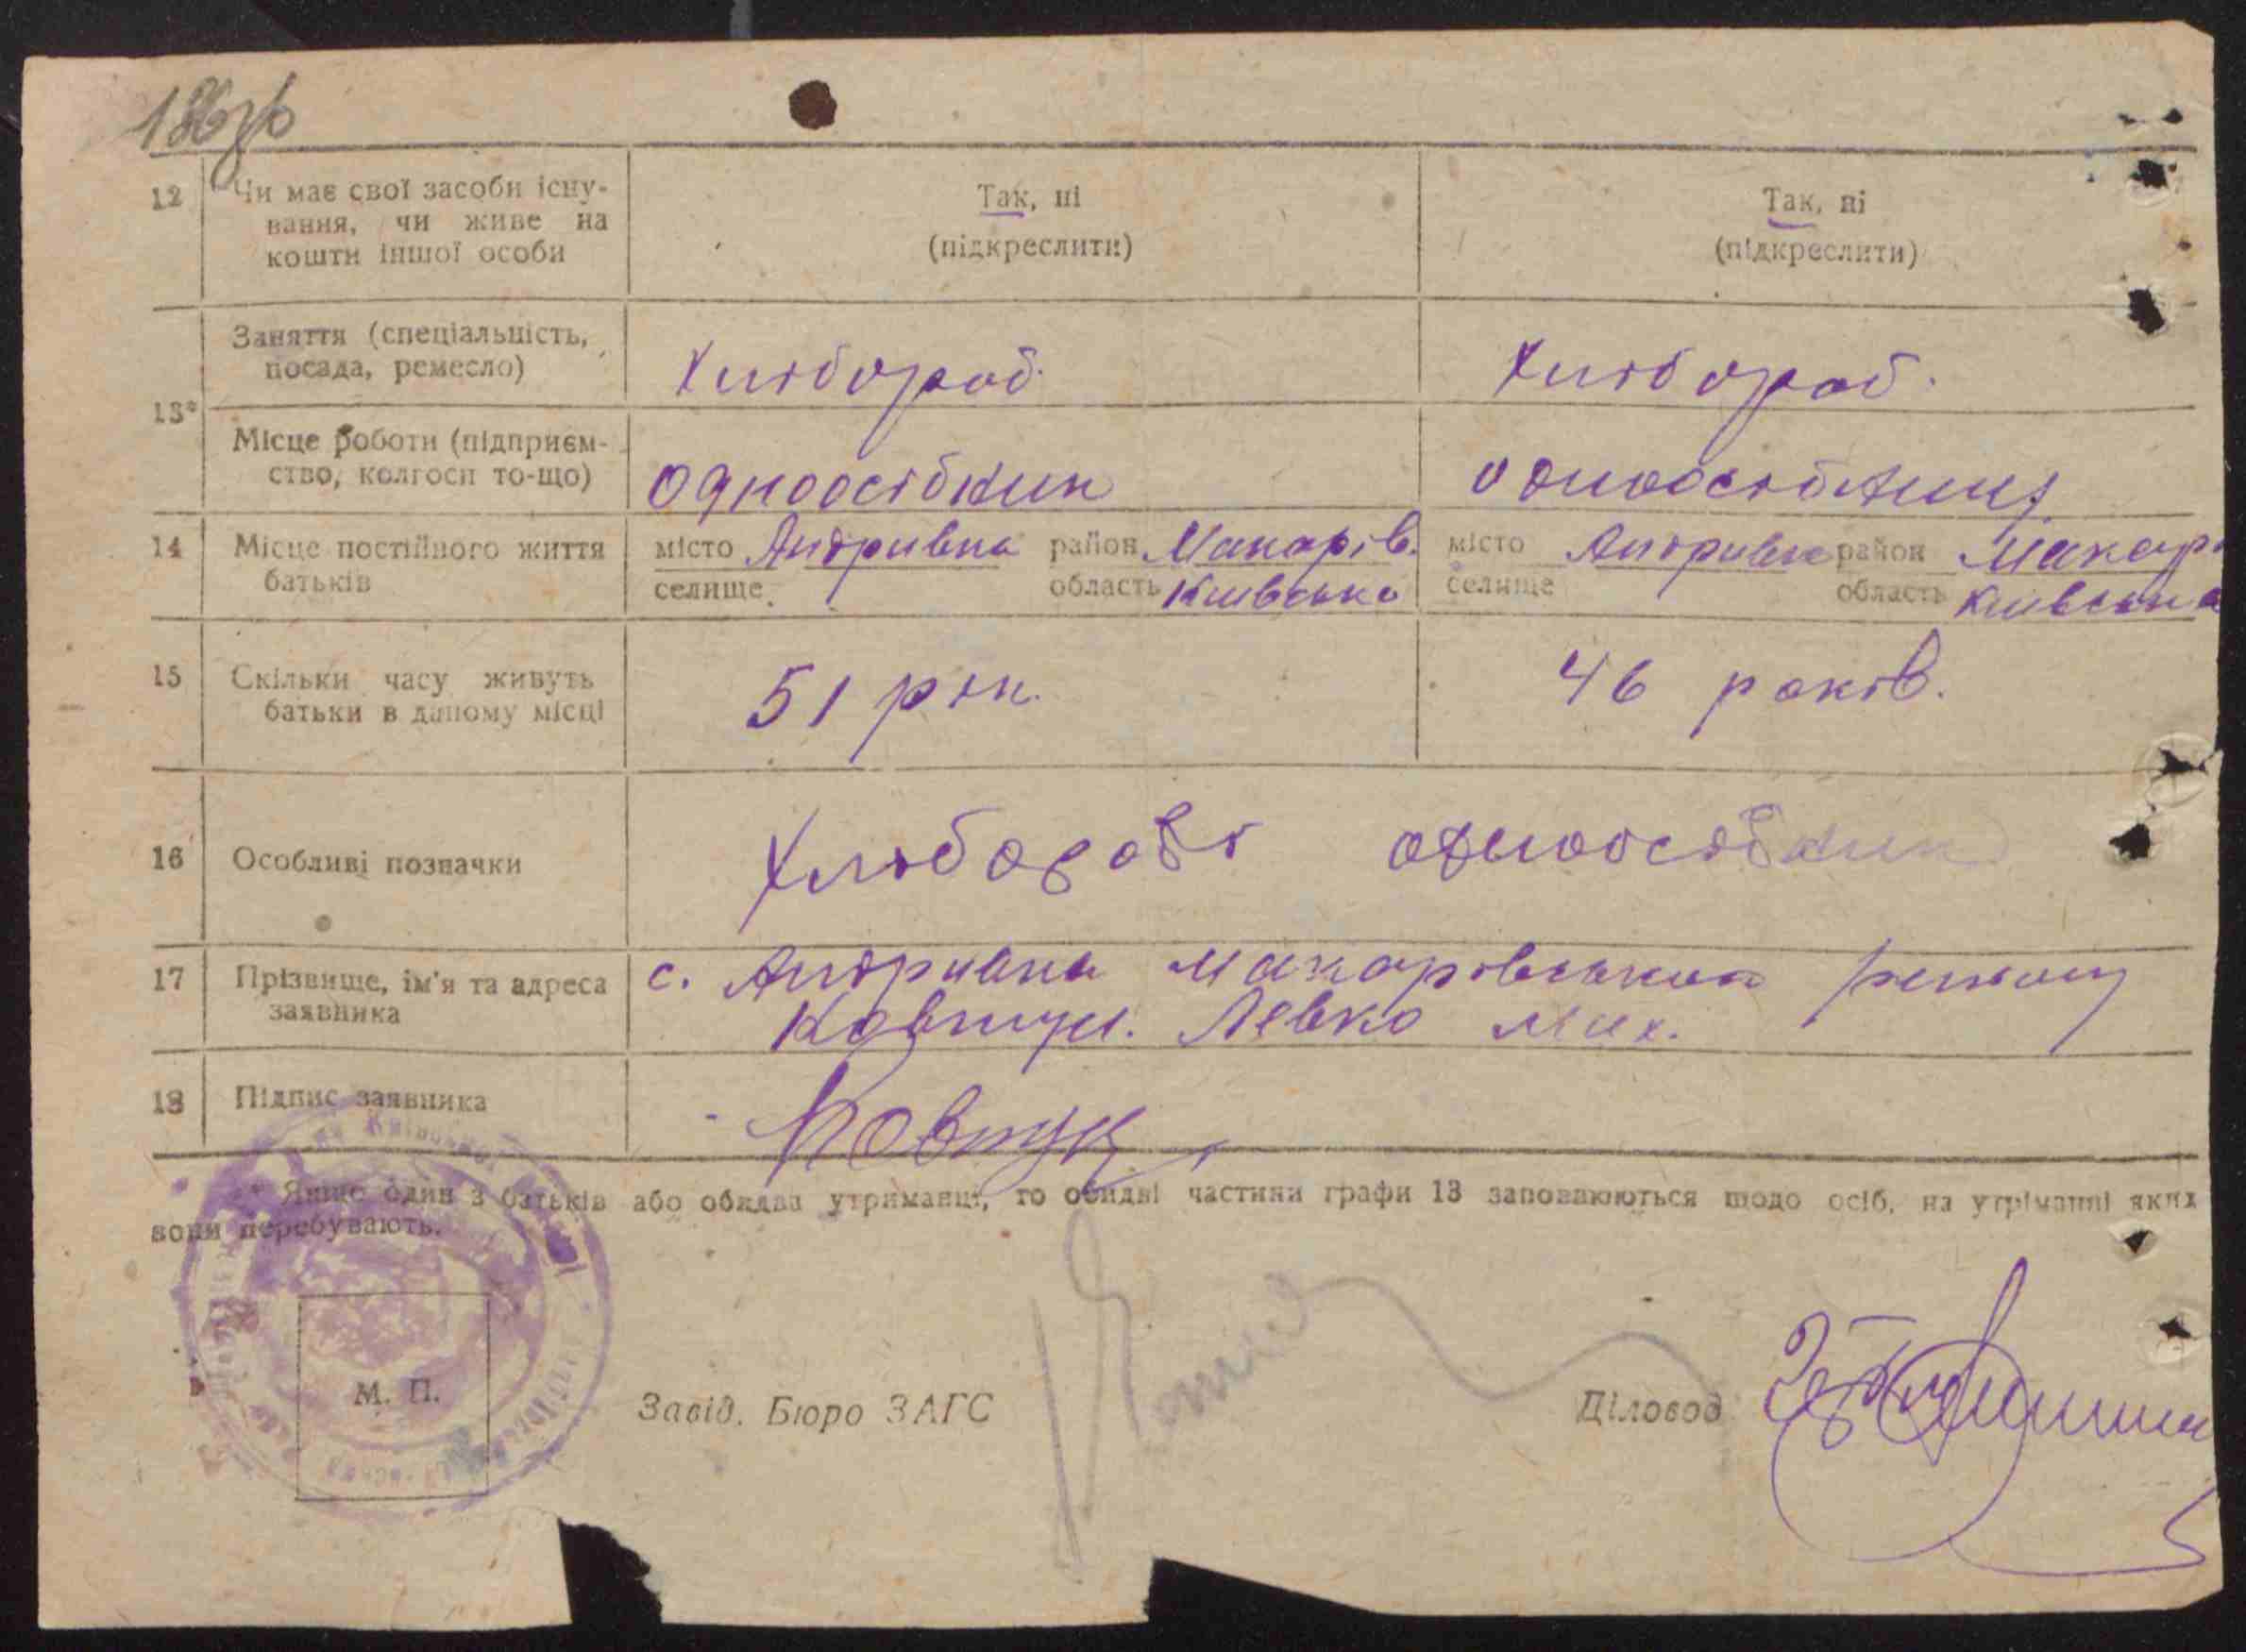 186зв
12 Чи має свої засоби існу-
вання, чи живе на
кошти іншої особи
Так, ні
(підкреслити)
Так, ні
(підкреслити)
13*
Заняття (спеціальність,
посада, ремесло)
Хлібороб.
Хлібороб.
Місце роботи (підприєм-
ство, колгосп то-що)
Одноосібник
Одноосібниц
14 Місце постійного життя
батьків
місто Андріівка район Макарів.
селище область Київська
місто Андріівка район Макарі
селище область Київська
15 Скільки часу живуть
батьки в даному місці
51 рік.
46 років.
16 Особливі позначки
Хлібороби одноосібники
17 Прізвище, ім'я та адреса
заявника
с. Андріівка Макарівського району
Ковтун. Левко Мих.
18 Підпис заявника
Ковтун
* Якщо один з батьків або обидва утриманці, то обидві частини графи 13 заповнюються щодо осіб, на утриманні яких
вони перебувають.
М. П.
Завід. Бюро ЗАГС
Діловод